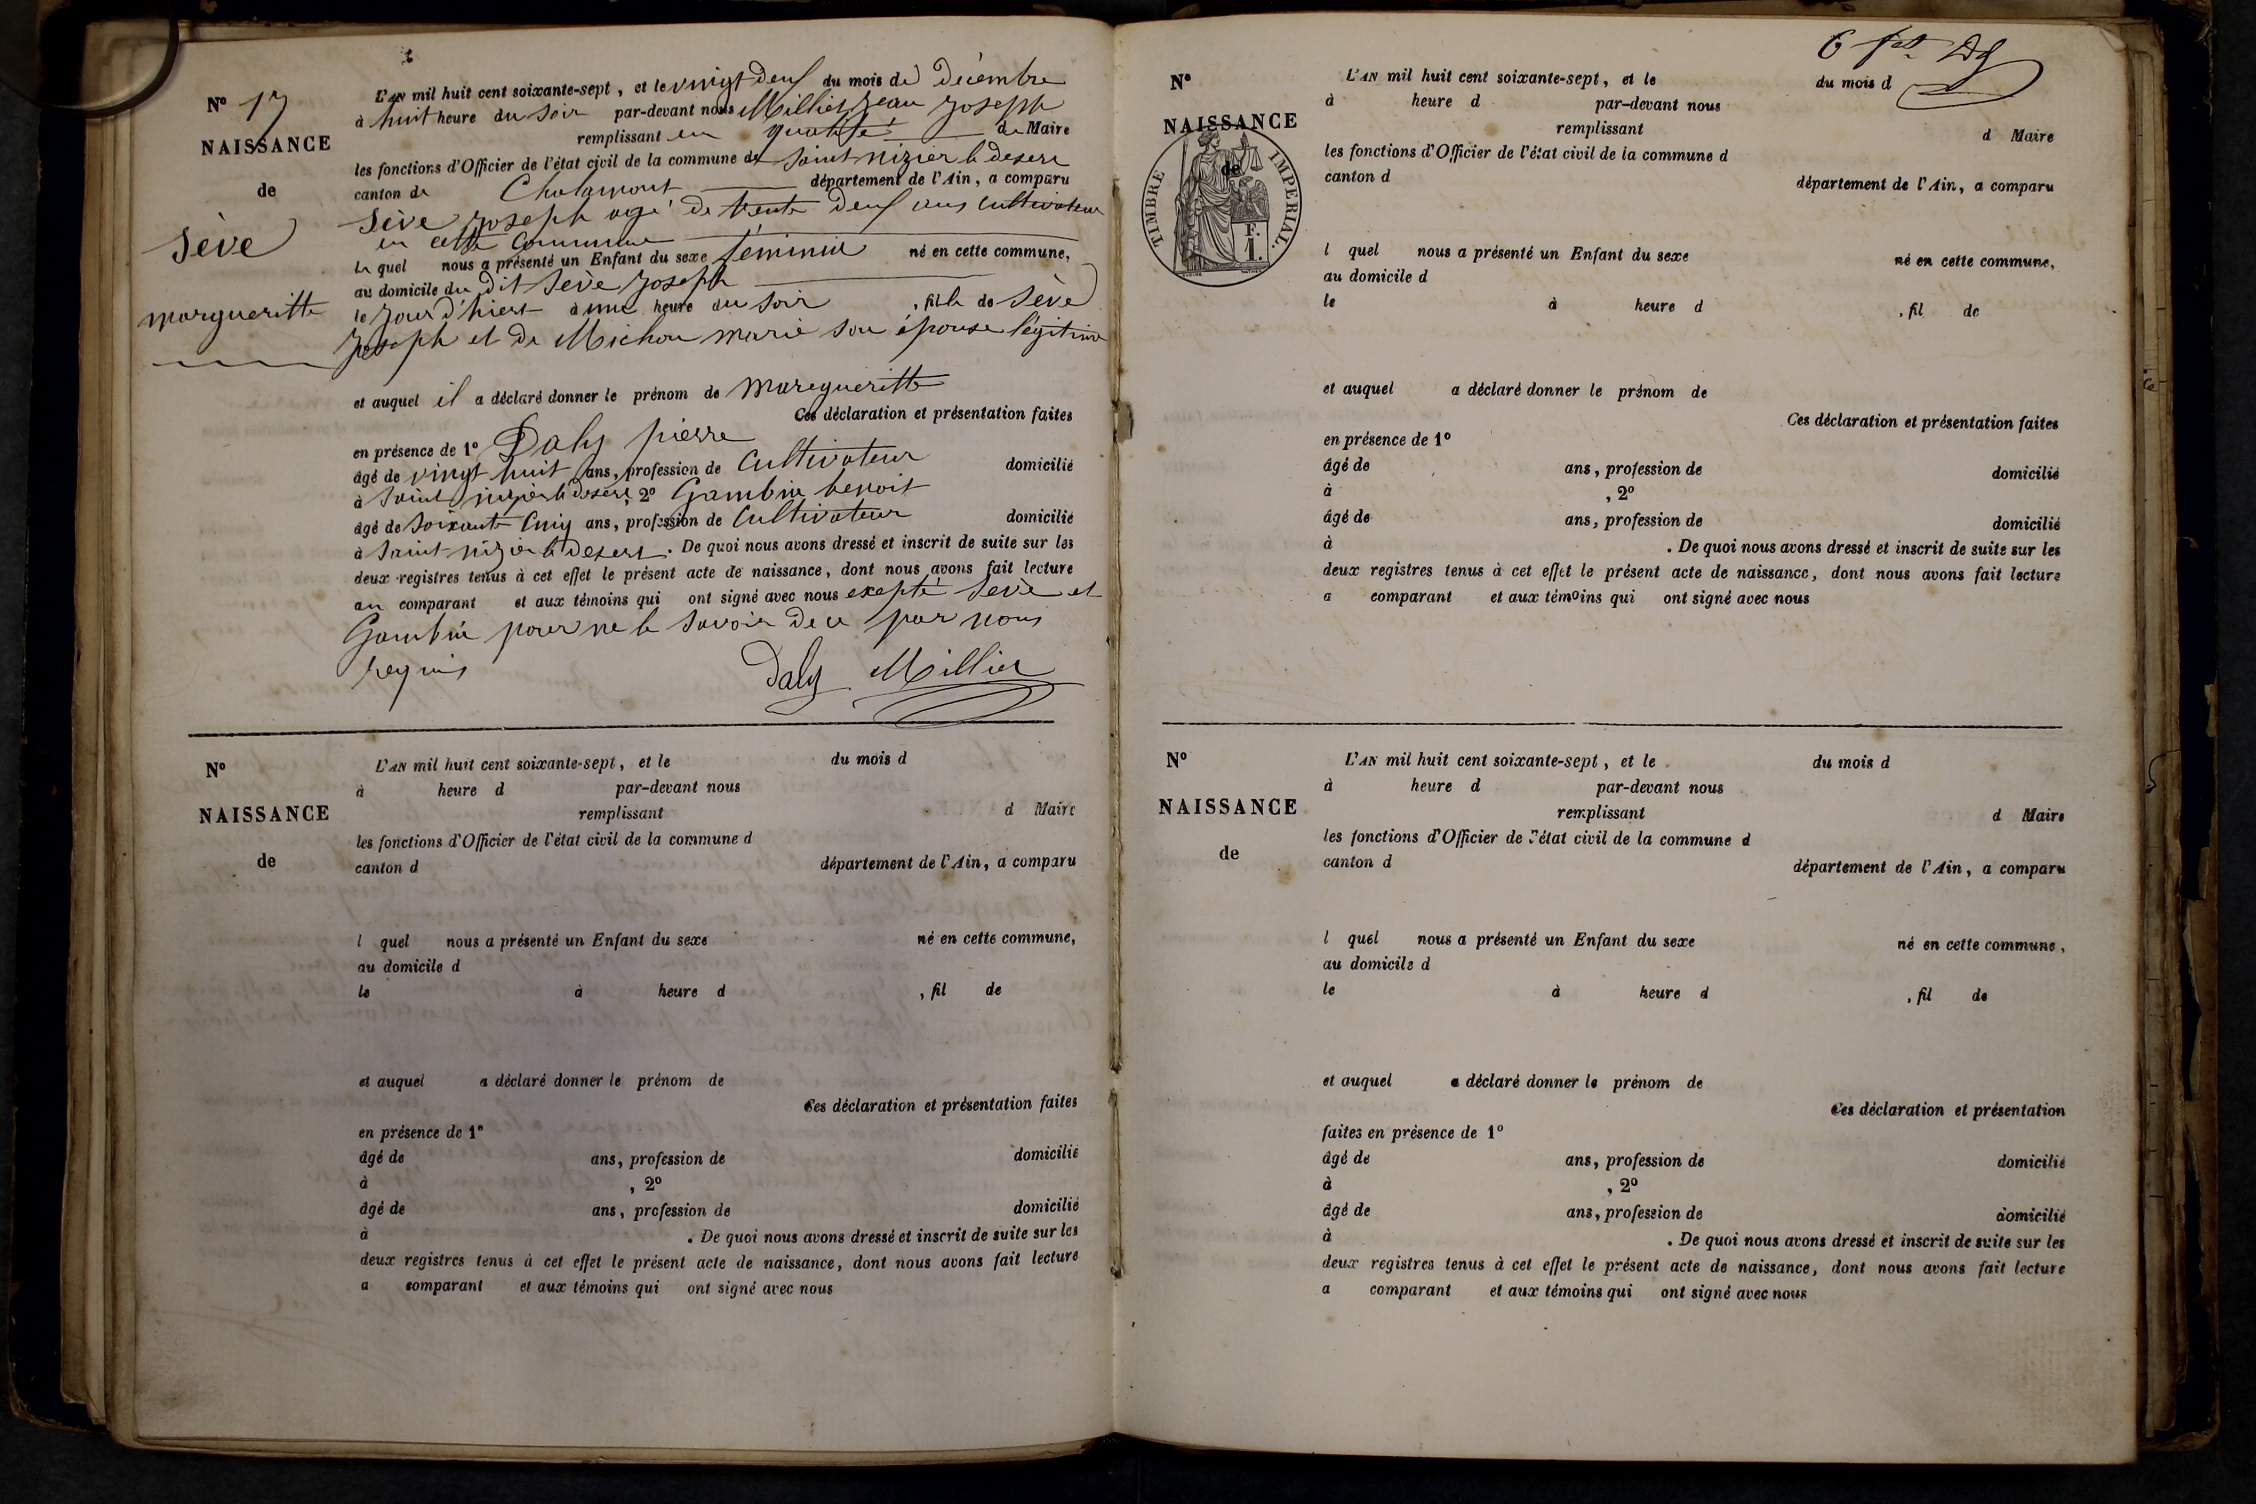 N° 17
NAISSANCE
de
Sève
Margueritte
L'AN mil huit cent soixante-sept, et le vingt deux du mois de Décembre
à huit heure du soir par-devant nous Millier Jean Joseph
remplissant en qualité de Maire
les fonctions d'Officier de l'état civil de la commune de Saint nizier le desert
canton de Chalamont département de l'Ain, a comparu
Sève Joseph agé de trente deux ans cultivateur
en cette Commune
le quel nous a présenté un Enfant du sexe féminin né en cette commune,
au domicile du dit Sève Joseph
le jour d'hiert à une heure du soir, fille de Sève
Joseph et de Michon marie son épouse légitime
et auquel il a déclaré donner le prénom de Margueritte
Ces déclaration et présentation faites
en présence de 1° Daly pierre
âgé de vingt huit ans, profession de Cultivateur domicilié
à Saint nizier le desert, 2° Gambin benoit
âgé de soixante cinq ans, profession de Cultivateur domicilié
à Saint nizier le desert. De quoi nous avons dressé et inscrit de suite sur les
deux registres tenus à cet effet le présent acte de naissance, dont nous avons fait lecture
au comparant et aux témoins qui ont signé avec nous exepté Sève et
Gambin pour ne le savoir de ce par nous
requis
Daly Millier
N°
NAISSANCE
de
L'AN mil huit cent soixante-sept, et le du mois d
à heure d par-devant nous
remplissant d Maire
les fonctions d'Officier de l'état civil de la commune d
canton d département de l'Ain, a comparu
l quel nous a présenté un Enfant du sexe né en cette commune,
au domicile d
le à heure d , fil de
et auquel a déclaré donner le prénom de
Ces déclaration et présentation faites
en présence de 1°
âgé de ans, profession de domicilié
à , 2°
âgé de ans, profession de domicilié
à . De quoi nous avons dressé et inscrit de suite sur les
deux registres tenus à cet effet le présent acte de naissance, dont nous avons fait lecture
a comparant et aux témoins qui ont signé avec nous
6
N°
NAISSANCE
de
TIMBRE IMPERIAL.
F.
1.
L'AN mil huit cent soixante-sept, et le du mois d
à heure d par-devant nous
remplissant d Maire
les fonctions d'Officier de l'état civil de la commune d
canton d département de l'Ain, a comparu
l quel nous a présenté un Enfant du sexe né en cette commune,
au domicile d
le à heure d , fil de
et auquel a déclaré donner le prénom de
Ces déclaration et présentation faites
en présence de 1°
âgé de ans, profession de domicilié
à , 2°
âgé de ans, profession de domicilié
à . De quoi nous avons dressé et inscrit de suite sur les
deux registres tenus à cet effet le présent acte de naissance, dont nous avons fait lecture
a comparant et aux témoins qui ont signé avec nous
N°
NAISSANCE
de
L'AN mil huit cent soixante-sept, et le du mois d
à heure d par-devant nous
remplissant d Maire
les fonctions d'Officier de l'état civil de la commune d
canton d département de l'Ain, a comparu
l quel nous a présenté un Enfant du sexe né en cette commune,
au domicile d
le à heure d , fil de
et auquel a déclaré donner le prénom de
Ces déclaration et présentation
faites en présence de 1°
âgé de ans, profession de domicilié
à , 2°
âgé de ans, profession de domicilié
à . De quoi nous avons dressé et inscrit de suite sur les
deux registres tenus à cet effet le présent acte de naissance, dont nous avons fait lecture
a comparant et aux témoins qui ont signé avec nous